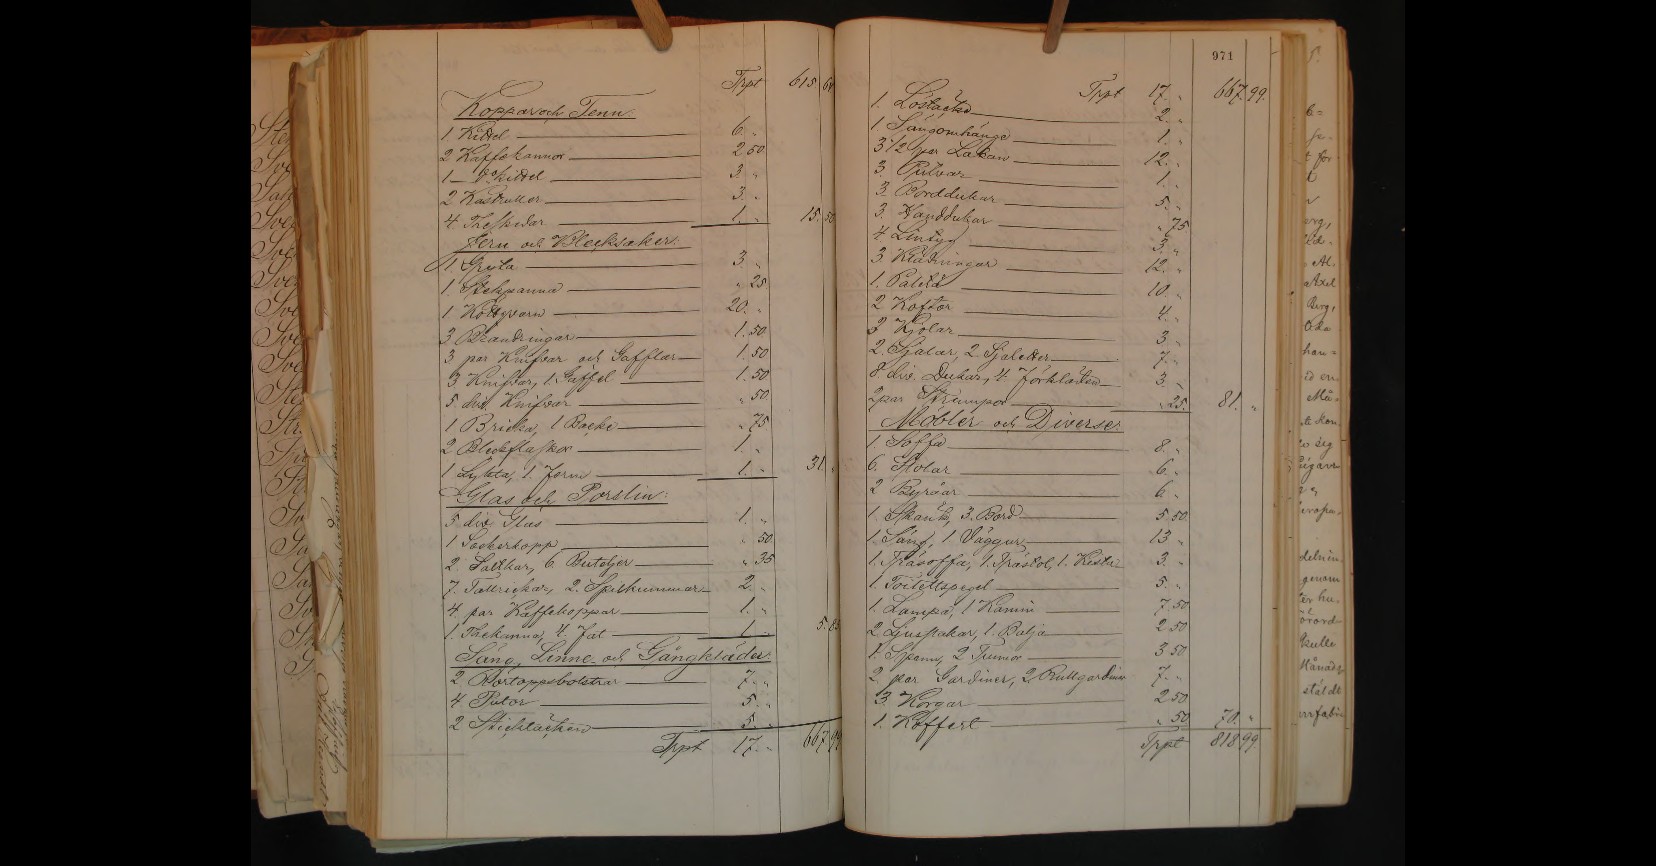 Trpt 615 64
Koppar och Tenn.
1 Kittel 6. "
2 Kaffekannor 2 50
1 d:o kittel 3 "
2 Kastruller 3. "
4. Theskedar 1. " 15. 50
Jern och Blecksaker:
1. Gryta 3 "
1. Stekpanna " 25
1 Köttqvarn 20. "
3 Brandringar 1. 50
3 par Knifvar och Gafflar 1. 50
3 Knifvar, 1. Gaffel 1. 50
5. div. Knifvar " 50
1 Bricka, 1 " 75
2 Bleckflaskor 1. "
1 Lykta, 1 Form 1. " 31. "
Glas och Porslin:
5 div. Glas 1. "
1 Sockerkopp " 50
2. Saltkar, 6. Buteljer " 35
7. Tallrickar, 2. Spilkummar 2. "
4. par Kaffekoppar 1. "
1. Thekanna, 4. Fat 1. " 5. 85
Säng, Linne- och Gångkläder:
2 Bortoppsbolstrar 7. "
4 Putor 5. "
2 Sticktäcken 5. "
Trpt 17. " 667 99
971
Trpt 17. " 667. 99.
1. Löstäcke 2. "
1. Sängomhänge 1. "
3 1/2 par Lakan 12. "
3. Örhvar 1. "
3. Borddukar 5. "
3. Handdukar " 75
4 Lintyg 3 "
3 Klädningar 12. "
1. Paletå 10. "
2 Koftor 4. "
3 Kjolar 3. "
2. Sjalar, 2 Sjaletter 7. "
8. div. Dukar, 4. Förkläden 3. "
2 par Strumpor " 25. 81. "
Möbler och Diverse:
1. Soffa 8. "
6. Stolar 6. "
2 Byråar 6. "
1. Skänk, 3. Bord 5. 50.
1. Säng, 1 Vaggur 13 "
1. Träsoffa, 1. Trästol, 1. Kista 3. "
1. Toilettspegel 5. "
1. Lampa, 1 Kamin 7. 50
2 Ljusstakar, 1. Balja 2 50
1. Spann, 2 3 50
2. par Gardiner, 2. Rullgardiner 7. "
3. Korgar 2 50
1. Koffert " 50 70. "
Trpt 818 99